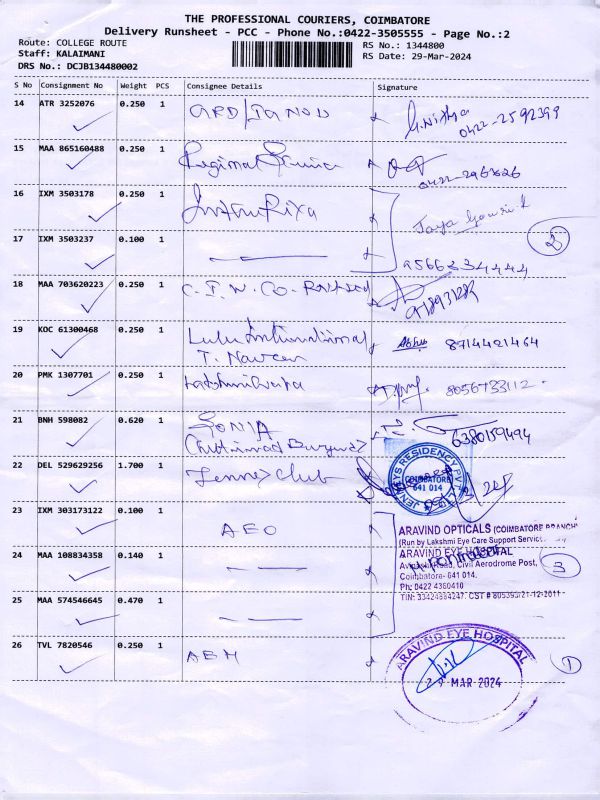 THE PROFESSIONAL COURIERS, COIMBATORE
Delivery Runsheet - PCC - Phone No.:0422-3505555 - Page No.:2
Route: COLLEGE ROUTE
Staff: KALAIMANI
DRS No.: DCJB134480002
RS No.: 1344800
RS Date: 29-Mar-2024
S No Consignment No Weight PCS Consignee Details Signature
14 ATR 3252076 0.250 1
0422-2592399
15 MAA 865160488 0.250 1 Regional
16 IXM 3503178 0.250 1
17 IXM 3503237 0.100 1
9566334444
2
18 MAA 703620223 0.250 1
19 KOC 61300468 0.250 1 Lulu International 8714421464
T. Naveen
20 PMK 1307701 0.250 1 8056733112
21 BNH 598082 0.620 1 SONIA 6380159494
22 DEL 529629256 1.700 1 Jenney Club
JENNEYS RESIDENCY PVT LTD
COIMBATORE
641 014
23 IXM 303173122 0.100 1 AEO
24 MAA 108834358 0.140 1
25 MAA 574546645 0.470 1
ARAVIND OPTICALS (COIMBATORE BRANCH)
(Run by Lakshmi Eye Care Support Service
ARAVIND EYE HOSPITAL
Road, Civil Aerodrome Post,
Coimbatore- 641 014.
Ph: 0422 4360410
3
26 TVL 7820546 0.250 1 AEH
ARAVIND EYE HOSPITAL
29 MAR 2024
1